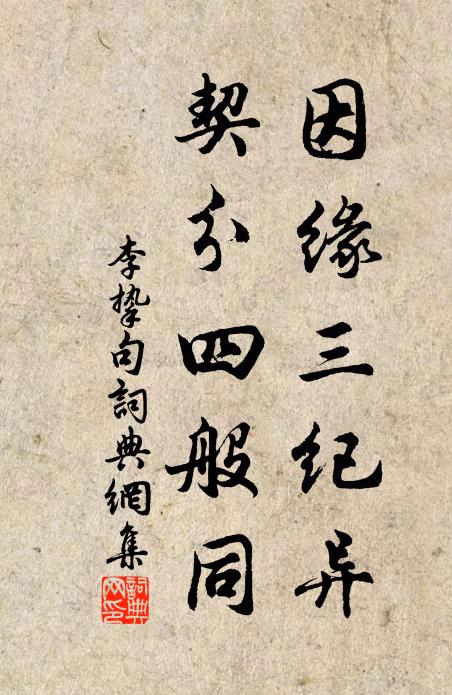 因缘三纪异
契分四般同
李挚句詞典網集
詞典
网印